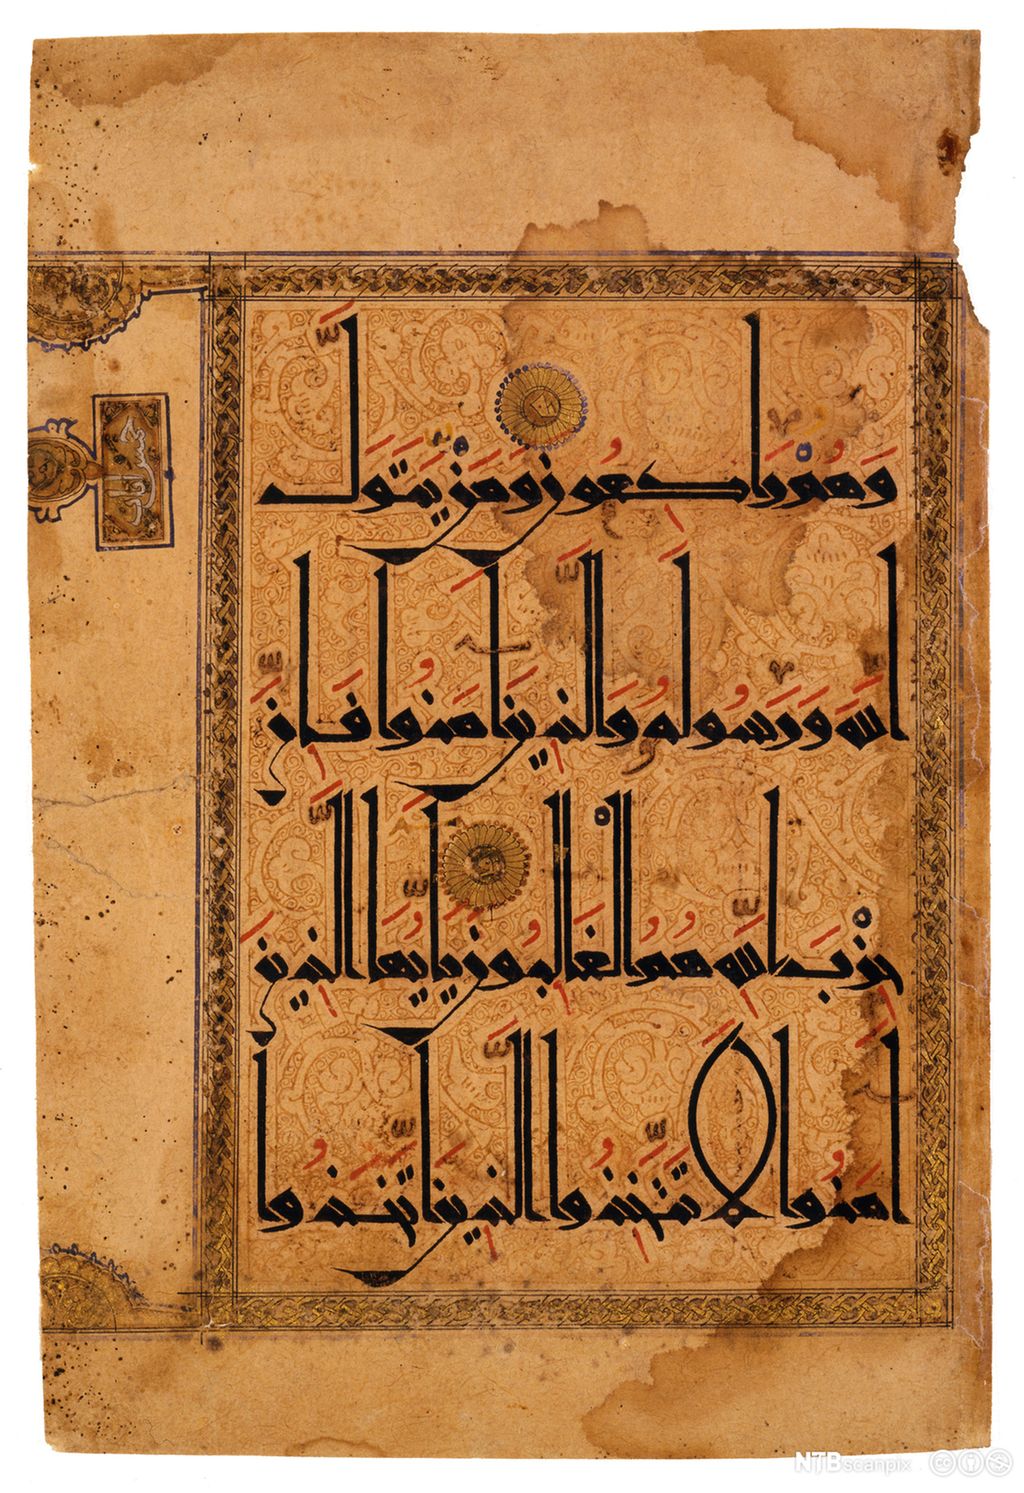 وَهُمْ رَاكِعُونَ وَمَنْ يَتَوَلَّ
اللَّهَ وَرَسُولَهُ وَالَّذِينَ آمَنُوا فَإِنَّ
حِزْبَ اللَّهِ هُمُ الْغَالِبُونَ يَايُّهَا الَّذِينَ
آمَنُوا لَا تَتَّخِذُوا الَّذِينَ اتَّخَذُوا
NTB scanpix